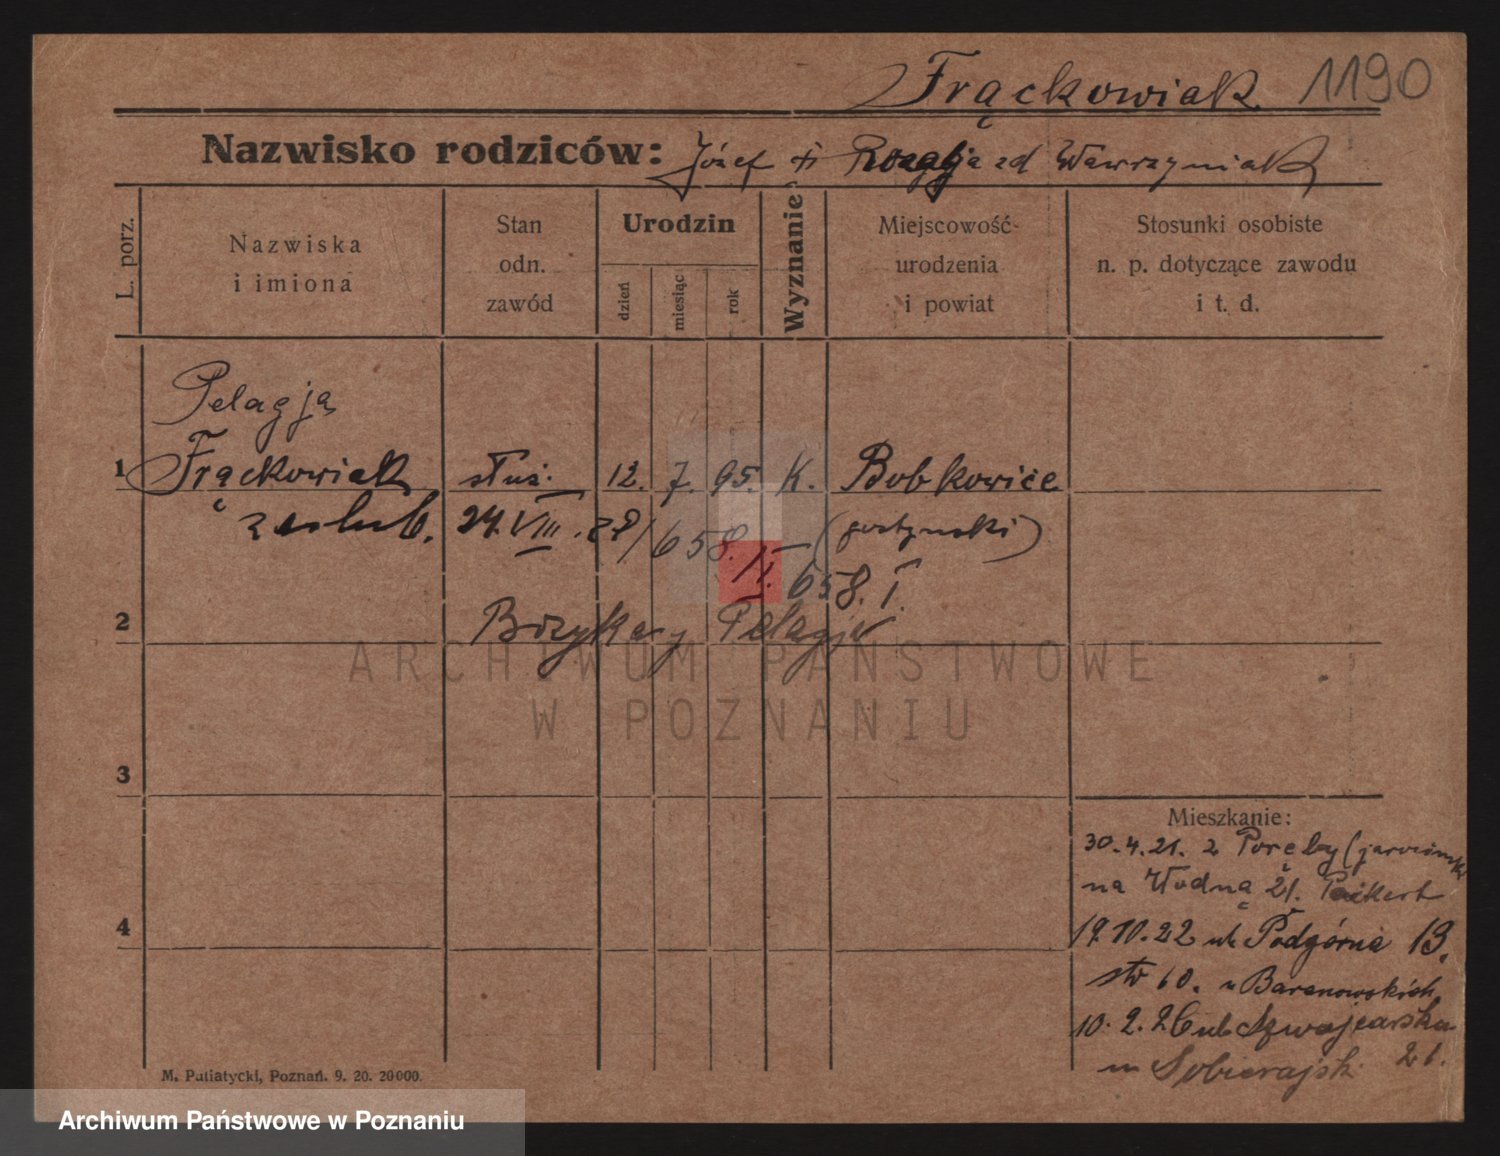 Frąckowiak 1190
Nazwisko rodziców: Józef i Pelagja zd Wawrzyniak
L. porz.
Nazwiska
i imiona
Stan
odn.
zawód
Urodzin
dzień
miesiąc
rok
Wyznanie
Miejscowość
urodzenia
i powiat
Stosunki osobiste
n. p. dotyczące zawodu
i t. d.
Pelagja
1 Frąckowiak służ. 12. 7. 95. K. Bobkowice
zaślub. 24. VIII. 28/658. (gostyński)
IX. 658. I.
2 Pelagja
ARCHIWUM PAŃSTWOWE
W POZNANIU
3
Mieszkanie:
30.4.21. z Poręby (jarociński
na Wodną 21.
4
19.10.22 ul. Podgórna 13.
60. u Baranowskich
10.2.26 ul. Szwajcarska
u Sobierajsk. 21.
M. Putiatycki, Poznań. 9. 20. 20000.
Archiwum Państwowe w Poznaniu